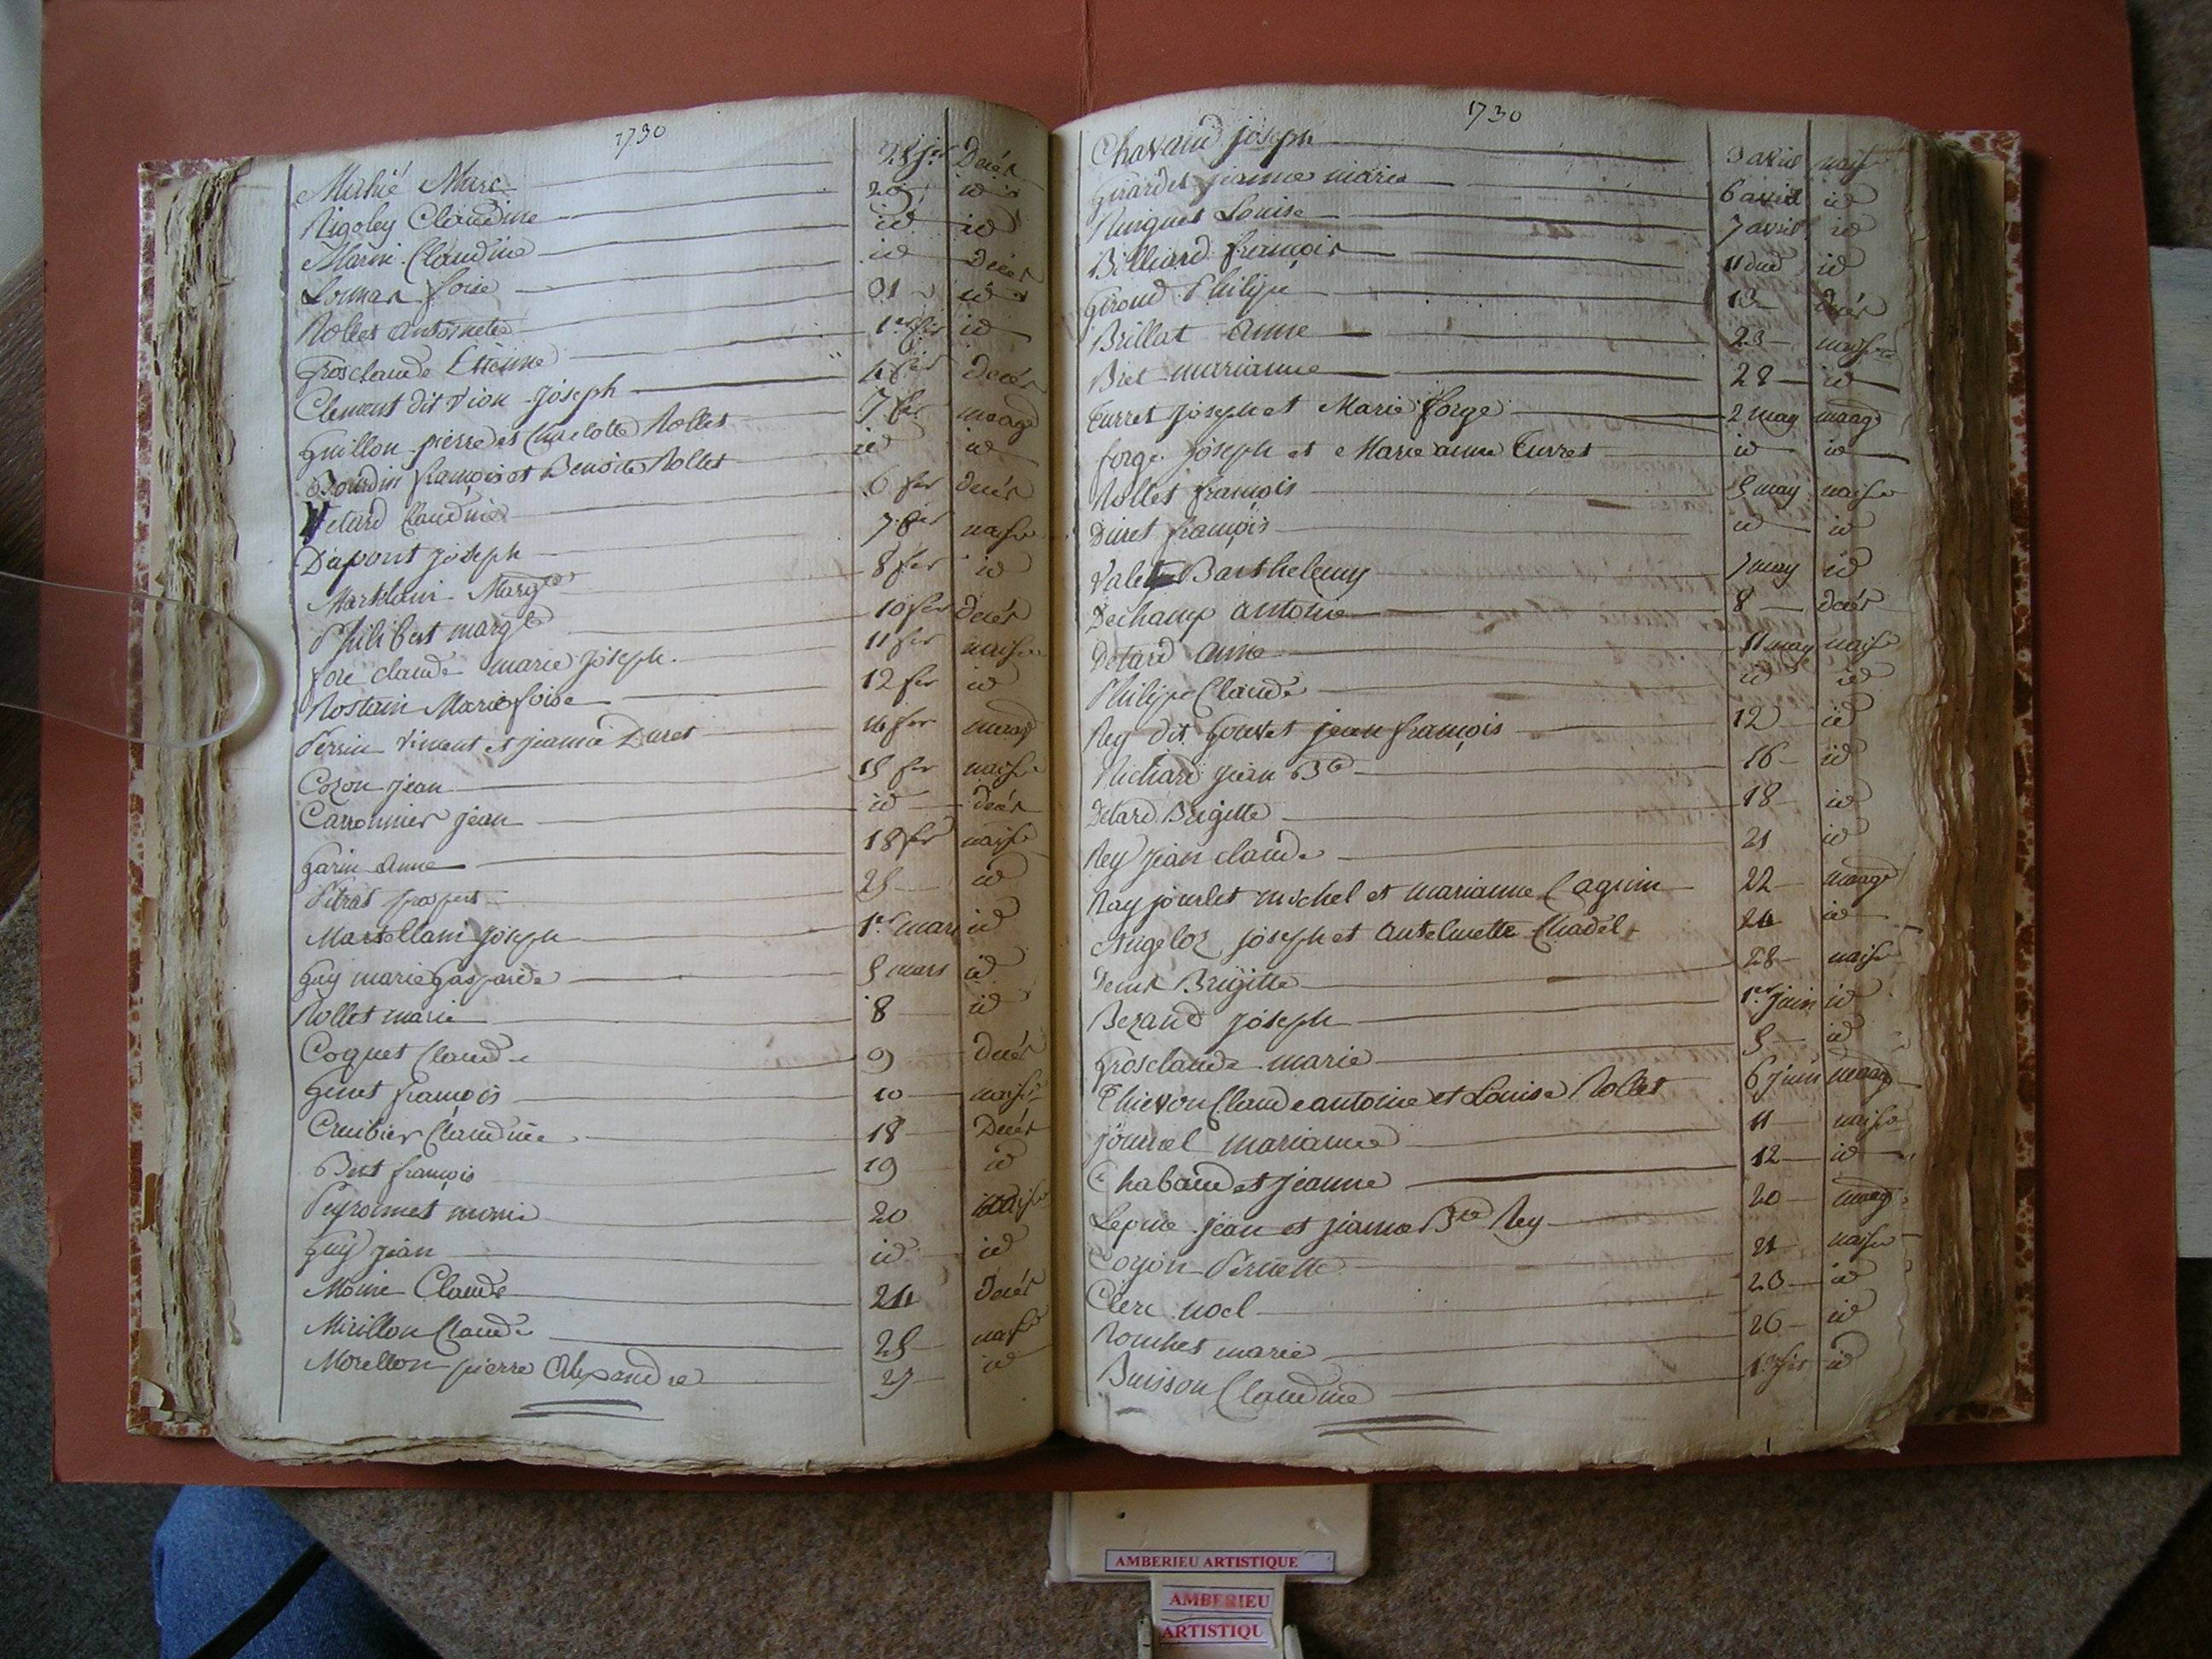 1730
Marc 28 Decés
Rigoley Claudine 29 id
Marin Claudine id id
foise id Decés
Rollet antoinette 31 id
Grosclaude Etienne 1er fer id
Clement dit Vion joseph 4 fer Decés
Guillon pierre et Rollet 7 fer maage
Bourdin françois et Benoite Rollet id id
Vetard Claudine 6 fer Decés
Dupont joseph 7 fer
Martelain Margte 8 fer id
Philibert margte 10 fer Decés
fore claude marie joseph 11 fer
Rostain Marie foise 12 fer id
Perrin Vincent et jeanne Duret 14 fer
Cozon jean 15 fer
Carronnier jean id Decés
Garin anne 18 fer
Petrat 25 id
Martellain joseph 1er mars id
Guy marie Gasparde 5 mars id
Rollet marie 8 id
Coquet Claude 9 Decés
Genet françois 10
Claudine 18 Decés
Bert françois 19 id
Peyronnet marie 20
Guy jean id id
Moine Claude 24 Decés
Mirillon Claude 25
Morellon pierre Alexandre 27 id
1730
Chavand joseph 3 avril
Girardet jeanne marie 6 avril id
Louise 7 avril id
Billiard françois 11 dud id
Giroud Philipe 13 Decés
Brillat anne 23
Bret marianne 28 id
Turret joseph et Marie forge 2 may maage
forge joseph et Marie anne Turret id id
Rollet françois 5 may
Duret françois id id
Valet Barthelemy 7 may id
Dechamp antoine 8 Decés
Detard anne 11 may
Philipe Claude id id
Rey dit jean françois 12 id
Richard jean Bte 16 id
Detard Brigitte 18 id
Rey jean claude 21 id
Ray jourlet michel et marianne Cagnin 22 maage
Angeloz joseph et antelmette Chadel 24 id
Brigitte 28
Bezand joseph 1er juin id
Grosclaude marie 5 id
Thievon Claude antoine et Louise Rollet 6 juin maage
journel marianne 11
Chabaud et jeanne 12 id
Lepine jean et jeanne Bte Rey 20
Coyon Pernette 21
Clerc noel 23 id
marie 26 id
Buisson Claudine id
AMBERIEU ARTISTIQUE
AMBERIEU
ARTISTIQU